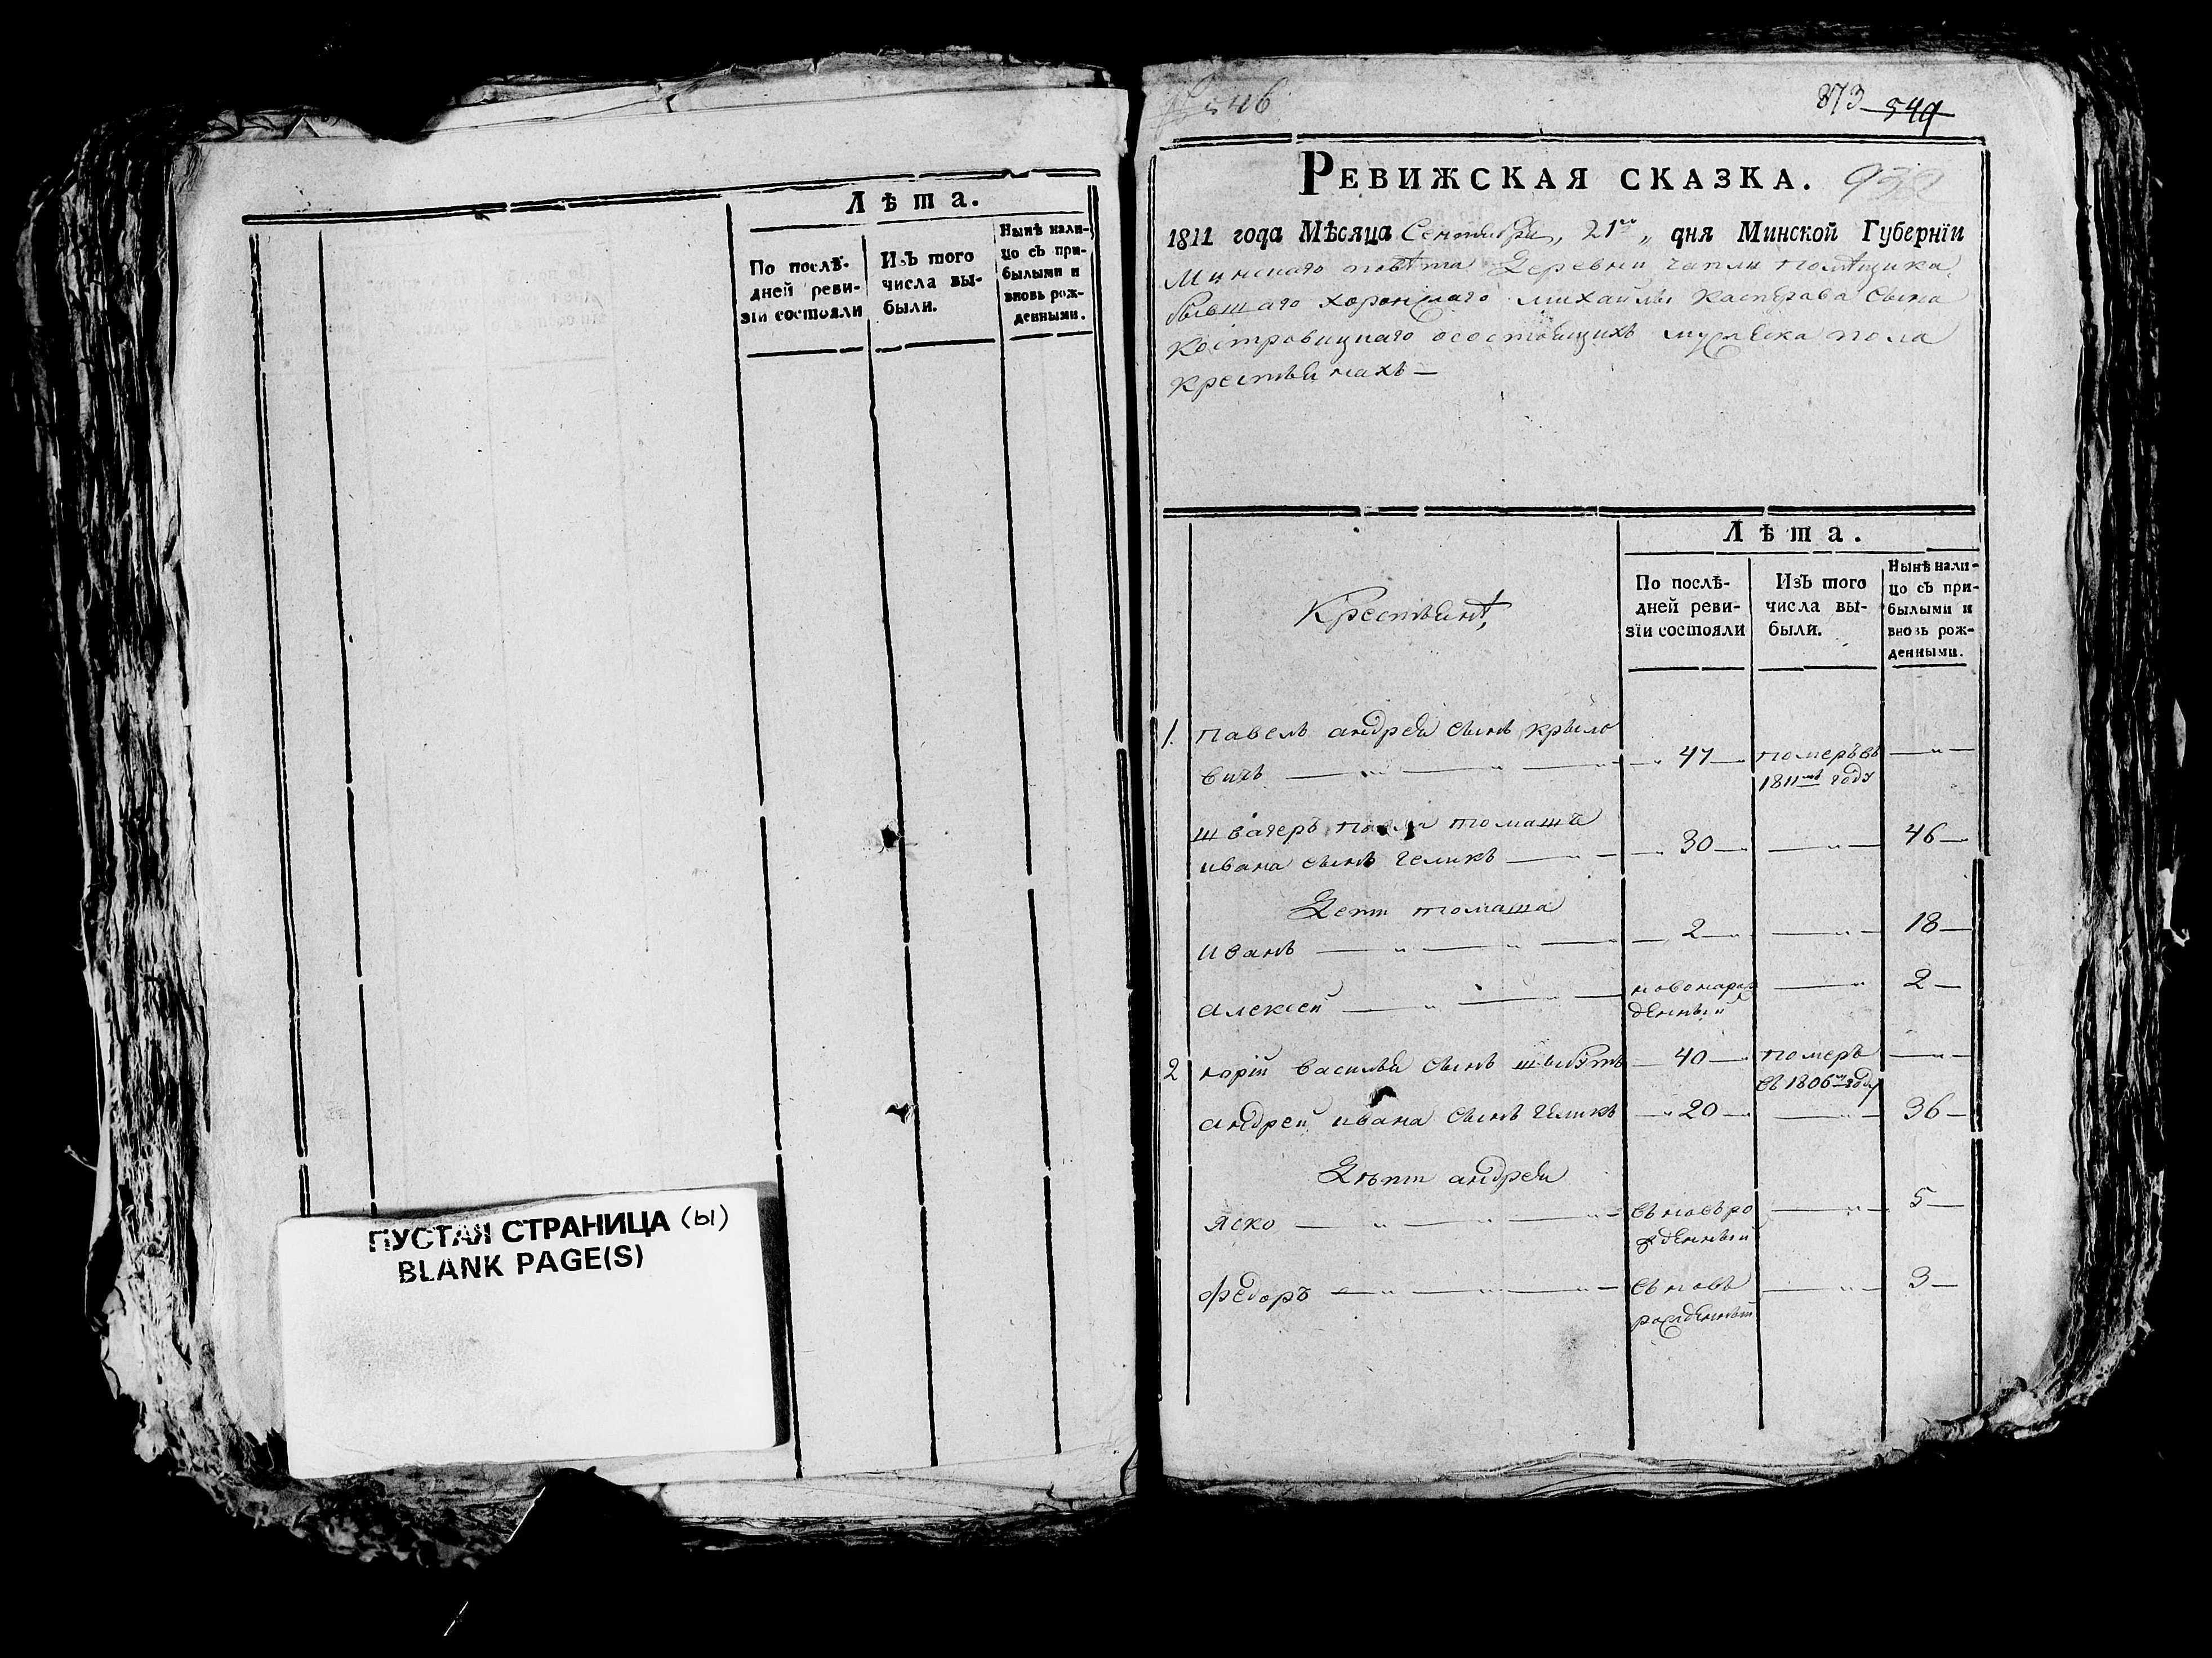 Лѣта.
По послѣ-
дней реви-
зїи состояли
ИзЪ того
числа вы-
были.
Нынѣ нали-
цо сЪ при-
былыми и
вновь рож-
денными.
ПУСТАЯ СТРАНИЦА (ы)
BLANK PAGE(S)
546
873 544
РЕВИЖСКАЯ СКАЗКА. 932
1811 года Мѣсяца Сентября, 21го дня Минской Губернїи
Минскаго повѣта Деревни чапли помѣщика
бывшаго хоронжаго михайлы каспърава сына
костровицкаго осостоящихъ мужеска пола
крестьянахъ —
Лѣта.
Крестьянѣ,
По послѣ-
дней реви-
зїи состояли
ИзЪ того
числа вы-
были.
Нынѣ нали-
цо сЪ при-
былыми и
вновь рож-
денными.
1. павелъ андрея сынъ крыло
вичъ — 47 — померъ въ
1811мъ году
швагеръ павла томашъ
ивана сынъ челикъ — 30 — 46 —
Дети томаша
иванъ — 2 — 18 —
алексей — новонарож
денный — 2 —
2 юрій василья сынъ — 40 — померъ
въ 1806м году
андрей ивана сынъ челикъ — 20 — 36 —
Дѣти андрея
яско — вьновьро
жденный — 5 —
федоръ — вьновь
рожденный — 3 —